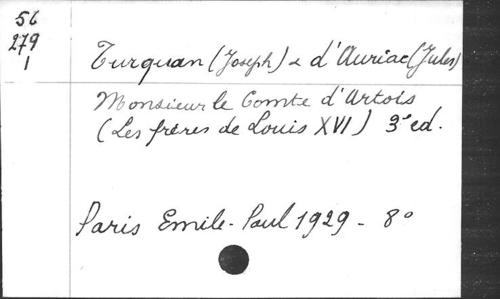 56
279
1
Turquan (Joseph) & d'Auriac (Jules)
Monsieur le Comte d'Artois
(Les frères de Louis XVI) 3e ed.
Paris Emile-Paul 1929 - 8°